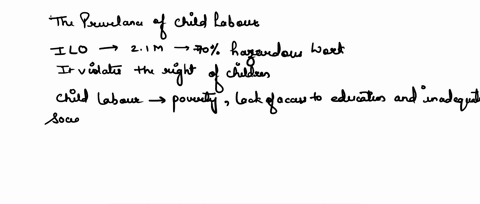 The Prevelance of child Labour
ILO → 2.1M → 70% hazardous work
It violates the right of children
child Labour → poverty, lack of access to education and inadequate
Soci